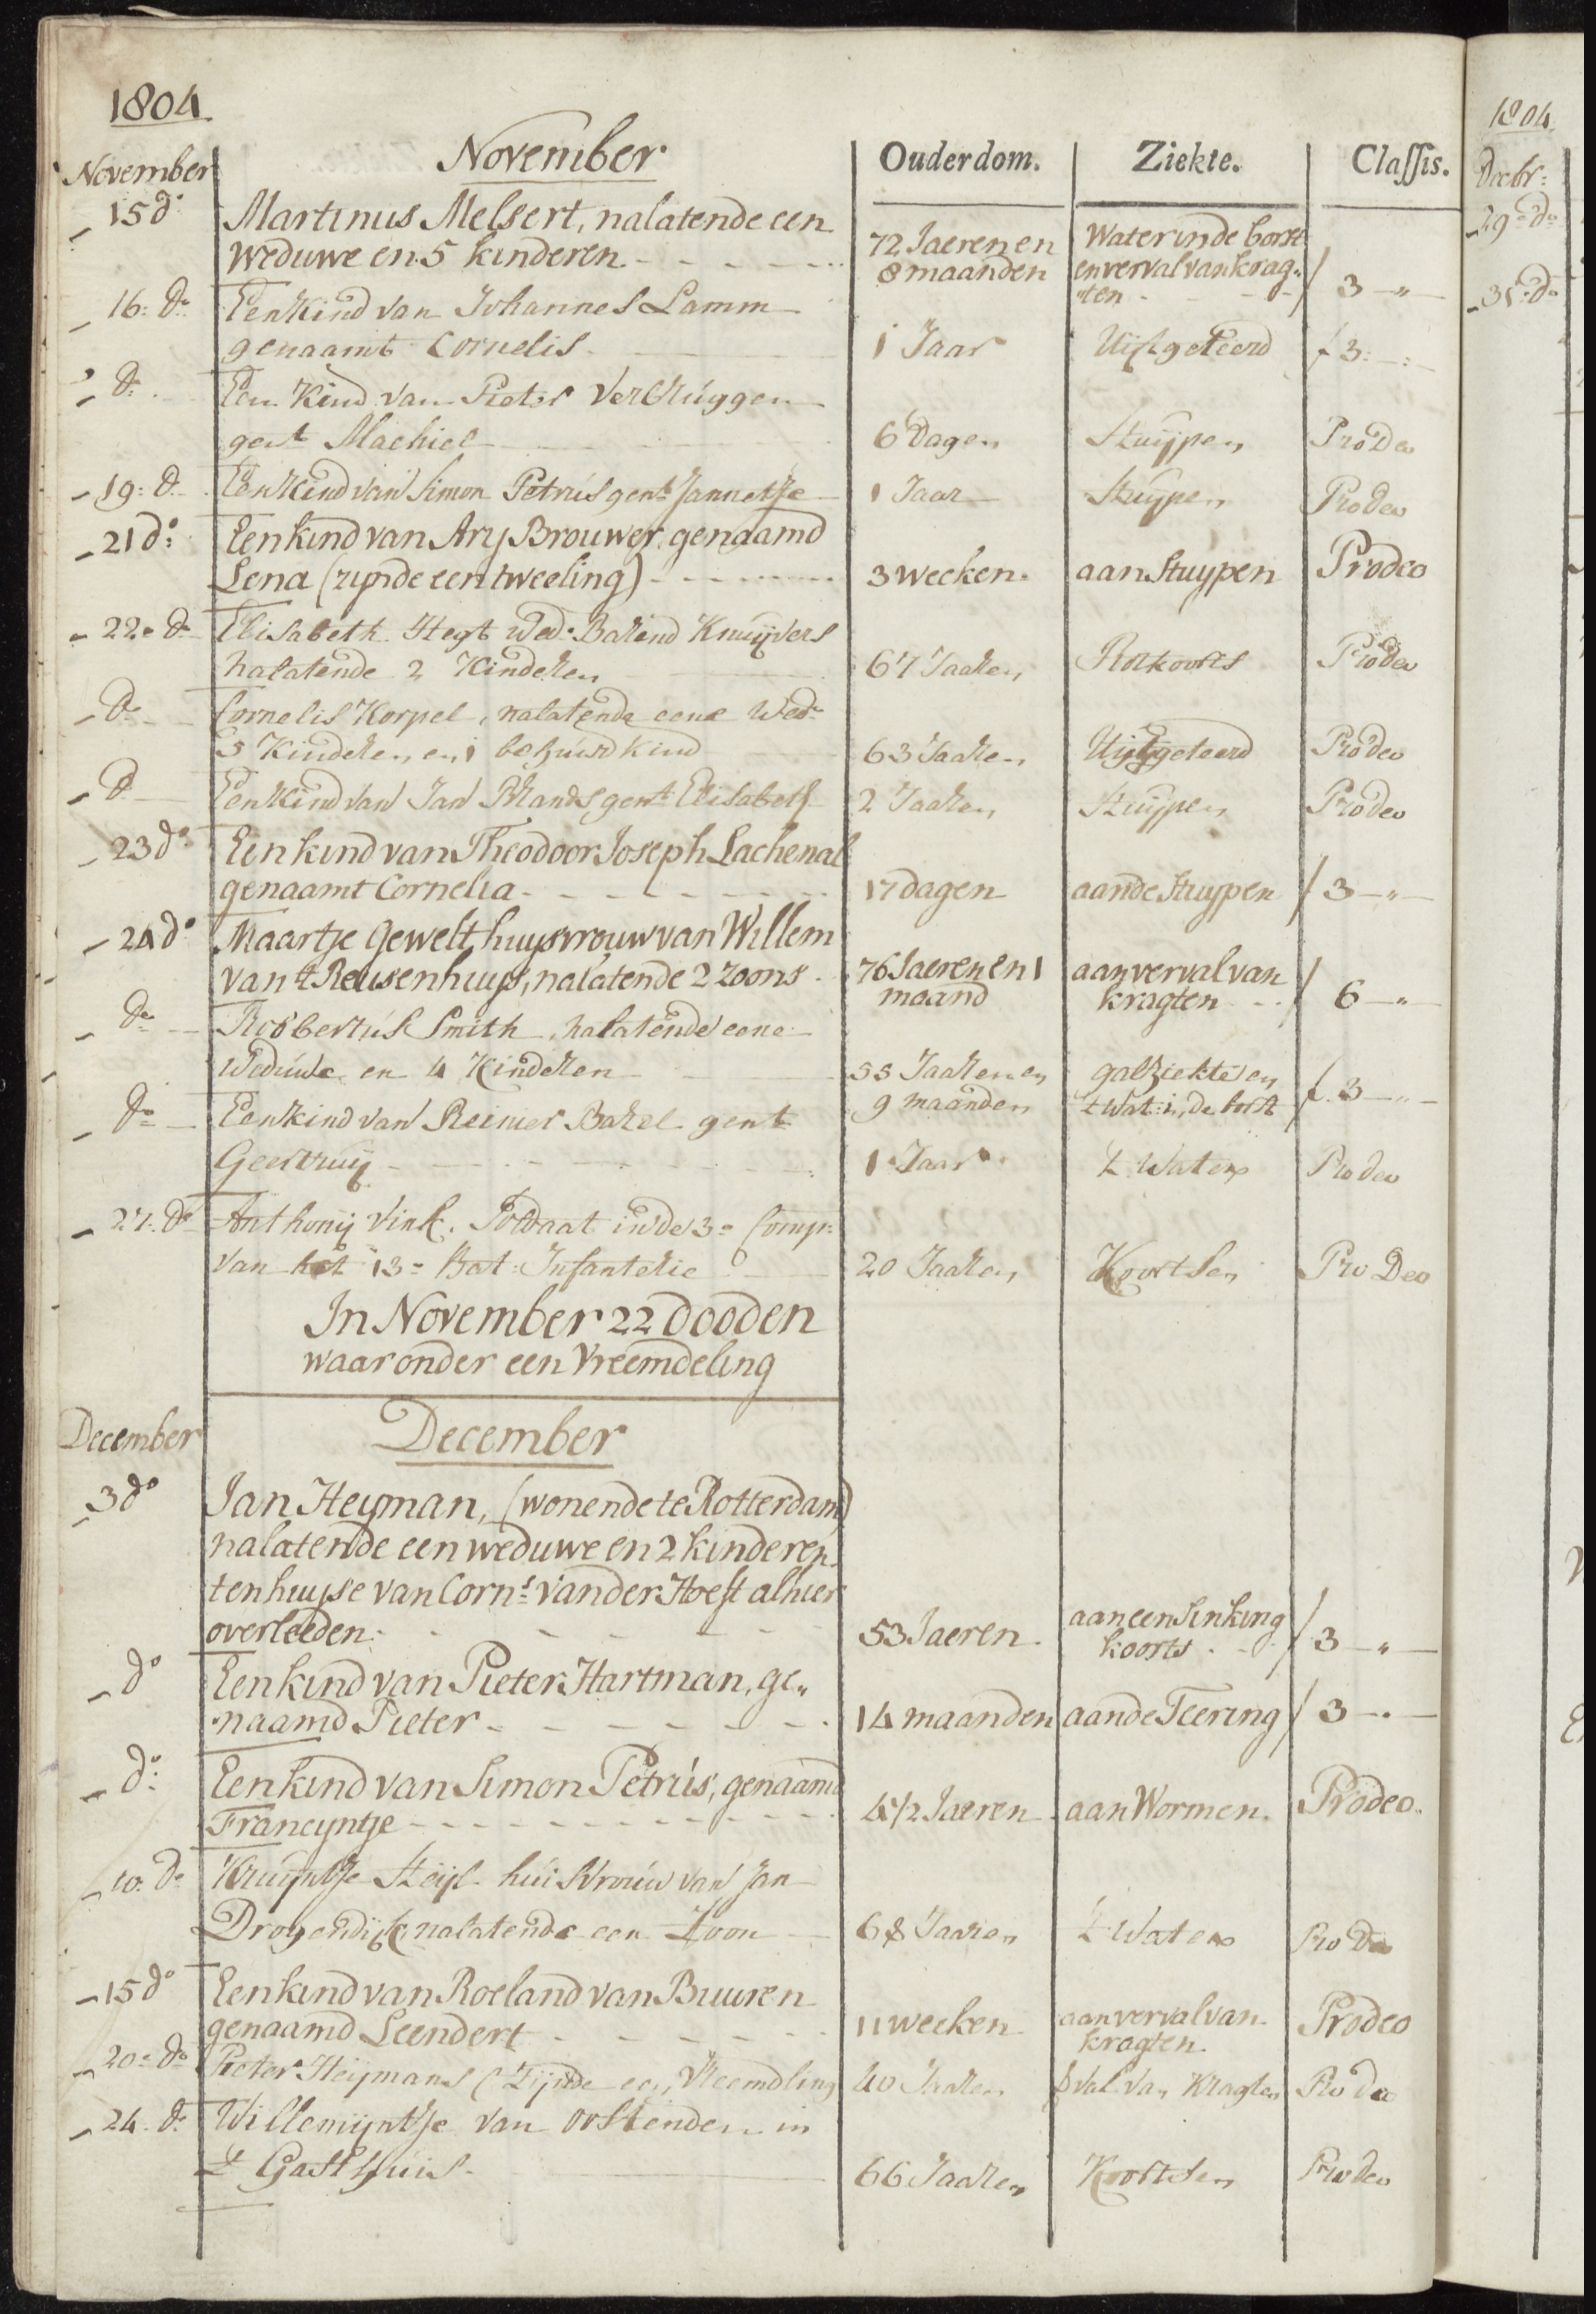 1804.
November
November
Ouderdom.
Ziekte.
Classis.
15 do
Martinus Melsert, nalatende een
weduwe en 5 kinderen
72 Jaeren en
8 maanden
Water in de borst
en verval van krag„
„ten
/ 3 — „ —
16: do
Een Kind van Johannes Lamm
genaamt Cornelis
1 Jaar
Uijtgeteerd
f 3:—:—
do
Een Kind van Pieter Verbruggen
gent Machiel
6 Dagen
Stuijpen
Pro Deo
19: do
Een Kind van Simon Petrus gent Jannetje
1 Jaar
Stuijpen
Pro deo
21 do:
Een kind van Ary Brouwer, genaamd
Lena (zijnde een tweeling)
3 weeken.
aan Stuypen
Prodeo
22e do
Elisabeth Hegt wed: Barend Knuijvers
nalatende 2 Kinderen
67 Jaaren
Rotkoorts
Pro deo
do
Cornelis Korpel, nalatende eene Wede
5 Kinderen, en 1 behuwd kind
63 Jaaren
Uijtgeteerd
Pro deo
do
Een Kind van Jan Brands gent Elisabeth
2 Jaaren
Stuijpen
Pro deo
23 do
Een kind van Theodoor Joseph Lachenal
genaamt Cornelia
17 dagen
aan de Stuypen
/ 3 — „ —
24 do
Maartje Gewelt, huysvrouw van Willem
van 't Reusenhuys, nalatende 2 zoons
76 Jaeren en 1
maand
aan verval van
kragten
/ 6 — „
do
Robbertus Smith, nalatende eene
Weduwe en 4 Kinderen
55 Jaaren en
9 maanden
galziekte en
t wat: in de borst
f. 3 — „ —
do
Een kind van Reinier Bakel gent
Geertruij
1 Jaar
't Water
Pro deo
27: do
Anthonij Vink. Soldaat in de 3e Comp:
van het 13e Bat: Infanterie
20 Jaaren
Koortsen
Pro Deo
In November 22 dooden
waaronder een Vreemdeling
December
December
3 do
Jan Heyman, (wonende te Rotterdam)
nalatende een weduwe en 2 kinderen
ten huyse van Corns: van der Hoeft alhier
overleeden
53 Jaeren
aan een Sinking
koorts
/ 3 — „ —
do
Een kind van Pieter Hartman, ge„
„naamd Pieter
14 maanden
aan de Teering
/ 3 — . —
do:
Een kind van Simon Petrus, genaamd
Francyntje
4 1/2 Jaeren
aan Wormen.
Prodeo.
10: do
Kruijntje Steijl huisvrouw van Jan
Drogendijk, nalatende een Zoon
68 Jaaren
't Water
Pro Deo
15 do
Een kind van Roeland van Buuren
genaamd Leendert
11 weeken
aan verval van
kragten.
Prodeo
20e do
Pieter Heijmans (Zijnde een Vreemdling
40 Jaaren
val van Kragten
Pro deo
24. do
Willemijntje van Oostenden in
't Gasthuis
66 Jaaren
Koortsen
Pro deo
1804.
Decbr:
29e do
31e do